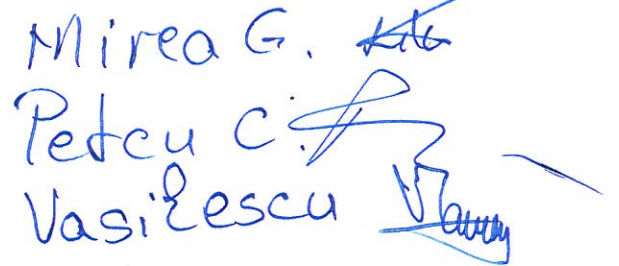 Mirea G.
Petcu C.
Vasilescu